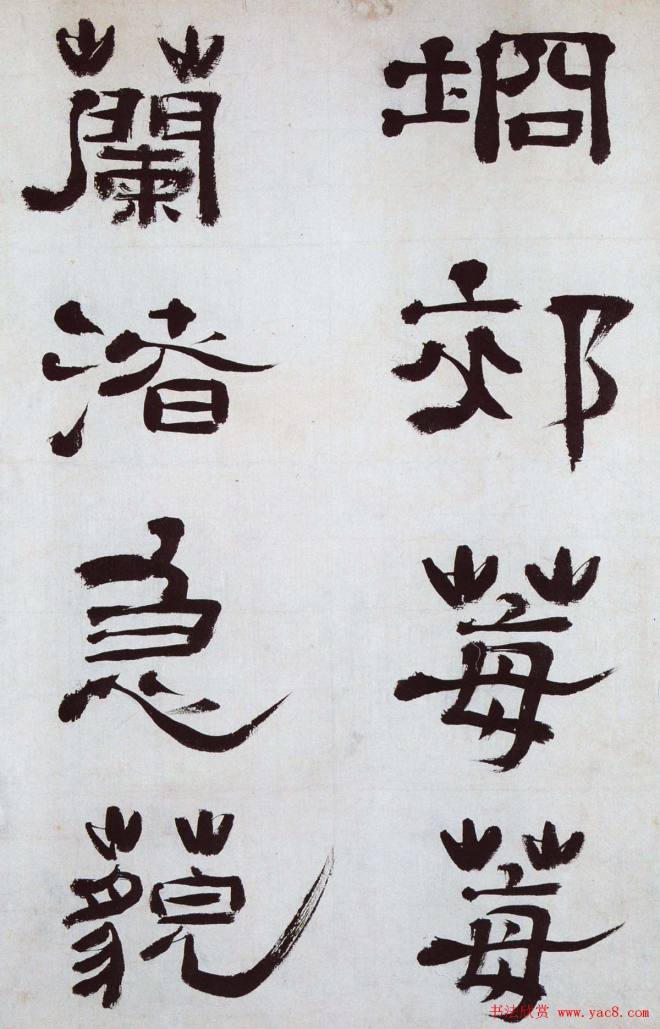 坰郊莓莓
蘭渚急藐
书法欣赏 www.yac8.com